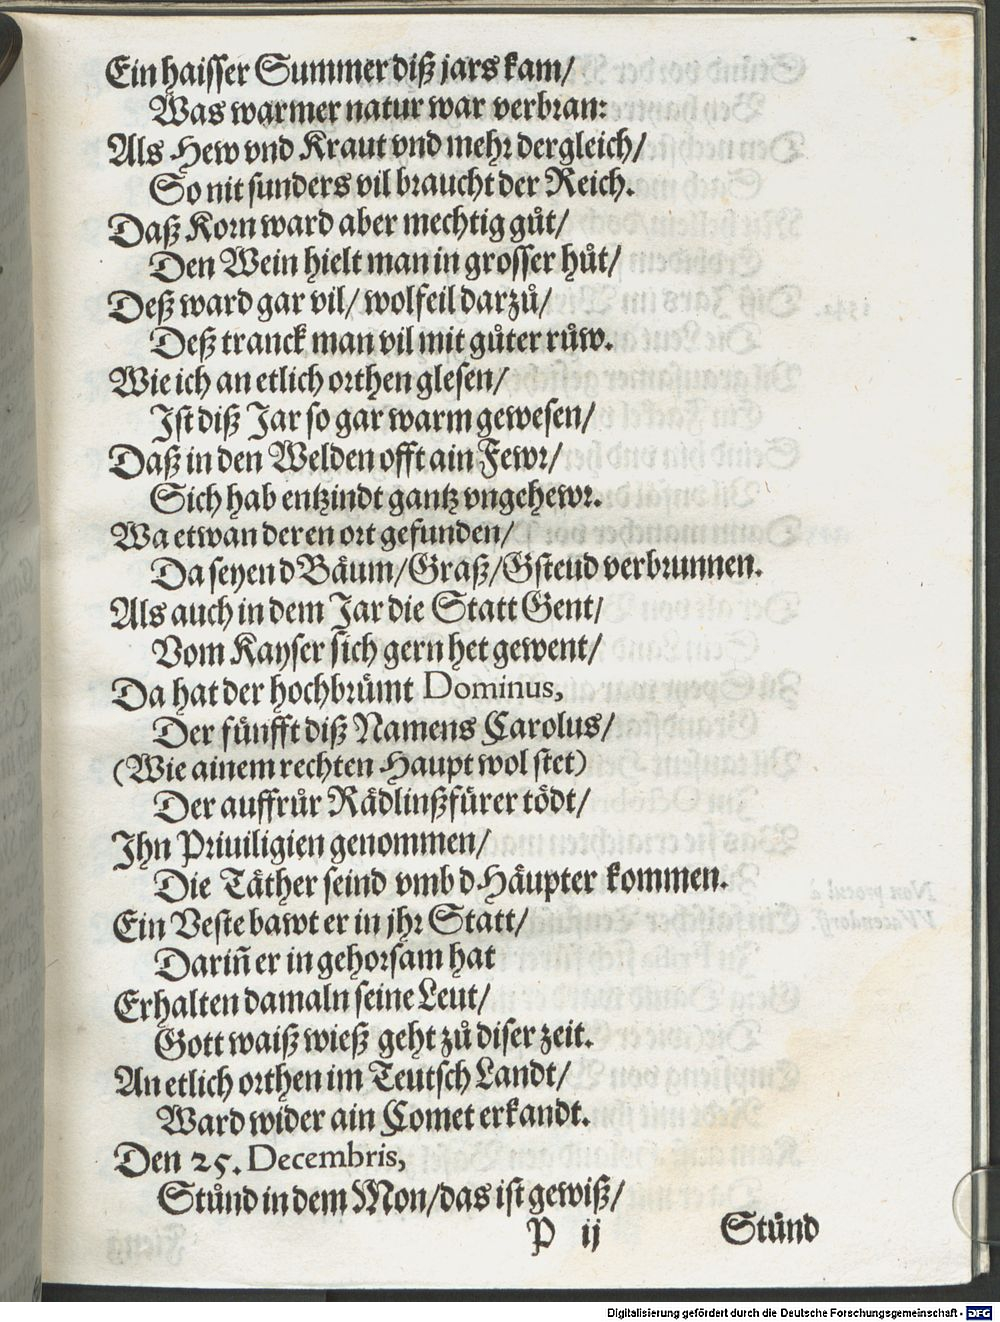 Ein haisser Summer diß jars kam/
Was warmer natur war verbran:
Als Hew vnd Kraut vnd mehr dergleich/
So nit sunders vil braucht der Reich.
Daß Korn ward aber mechtig gůt/
Den Wein hielt man in grosser hůt/
Deß ward gar vil/ wolfeil darzů/
Deß tranck man vil mit gůter růw.
Wie ich an etlich orthen glesen/
Ist diß Jar so gar warm gewesen/
Daß in den Welden offt ain Fewr/
Sich hab entzindt gantz vngehewr.
Wa etwan deren ort gefunden/
Da seyen d Bäum/Graß/Gsteud verbrunnen.
Als auch in dem Jar die Statt Gent/
Vom Kayser sich gern het gewent/
Da hat der hochbrümt Dominus,
Der fünfft diß Namens Carolus/
(Wie ainem rechten Haupt wol stet)
Der auffrůr Rädlinßfürer tödt/
Ihn Priuiligien genommen/
Die Täther seind vmb d Häupter kommen.
Ein Veste bawt er in jhr Statt/
Dariñ er in gehorsam hat
Erhalten damaln seine Leut/
Gott waiß wieß geht zů diser zeit.
An etlich orthen im Teutsch Landt/
Ward wider ain Comet erkandt.
Den 25. Decembris,
Stůnd in dem Mon/das ist gewiß/
P ij Stůnd
1542.
Non procul à
VVarendorff.
Fieng
Digitalisierung gefördert durch die Deutsche Forschungsgemeinschaft - DFG